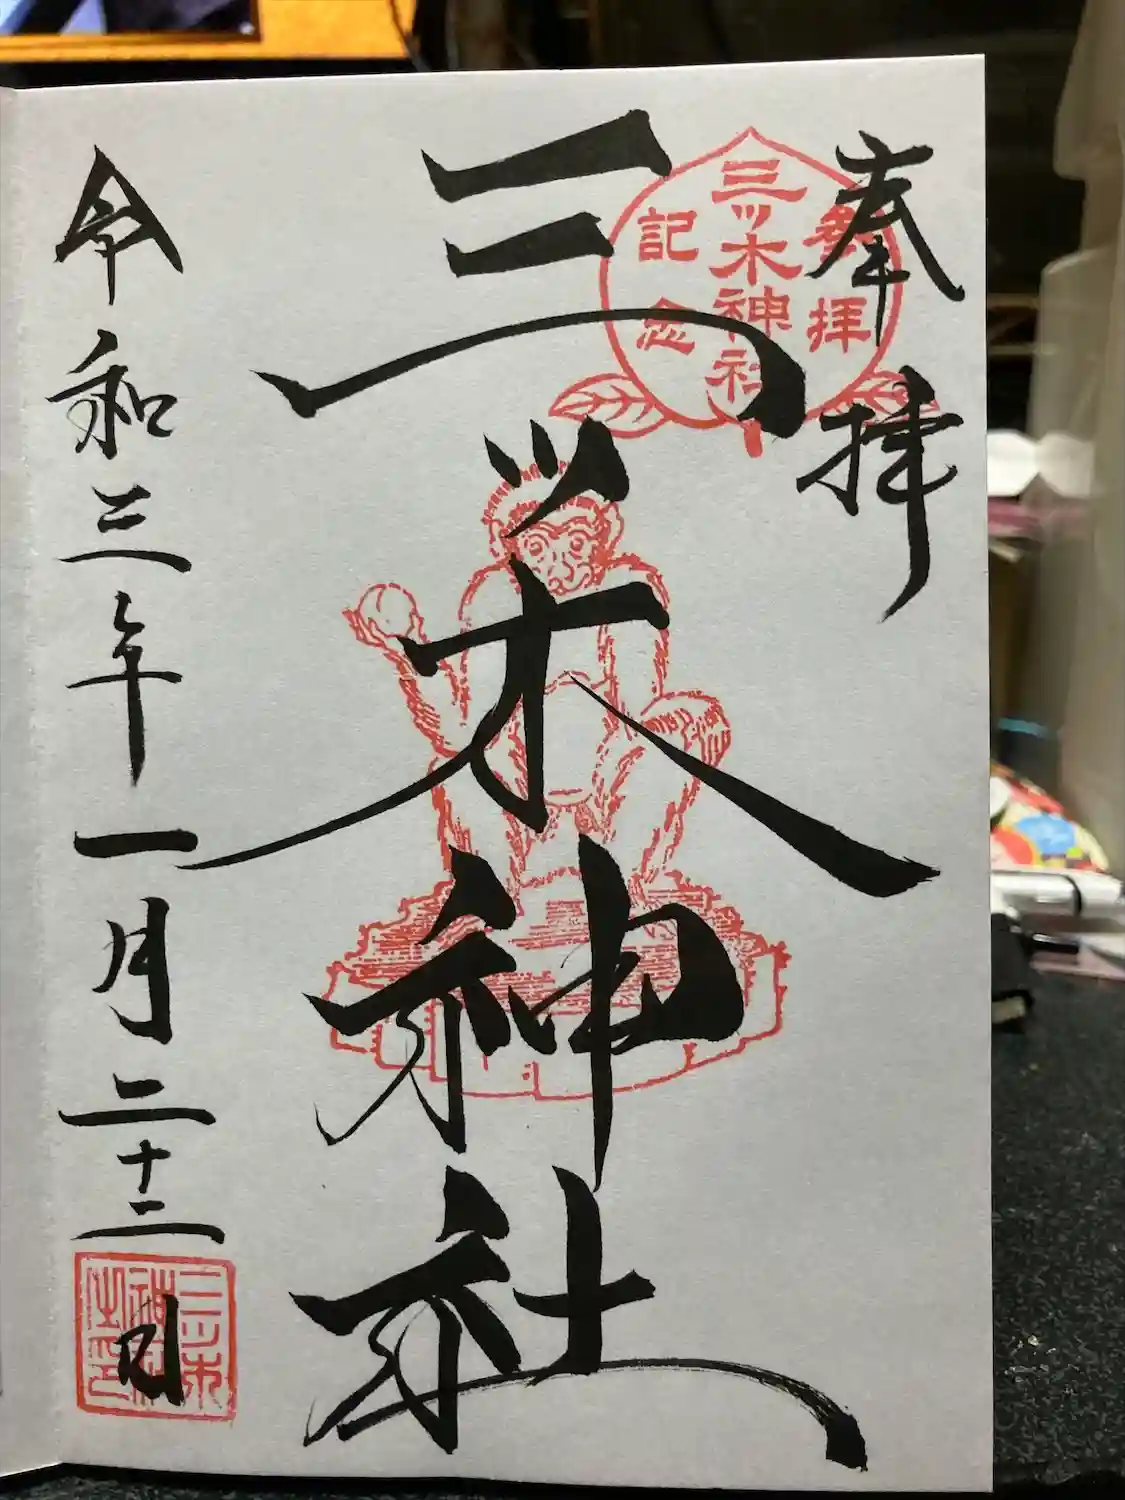 奉拝
参拝
三ッ木神社
記念
三ッ木神社
令和三年一月二十二日
三ツ木
神社
之印